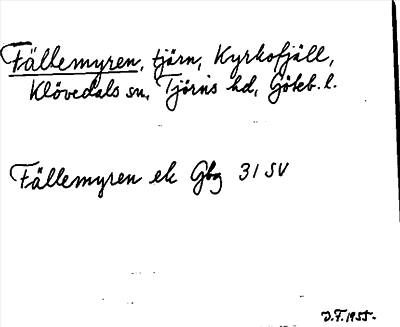 Fällemyren, tjörn, Kyrkefjäll,
Klövedals sn, Tjörns hd, Göteb. l.
Fällemyren ek Gbg 31 SV
J.F. 1955.